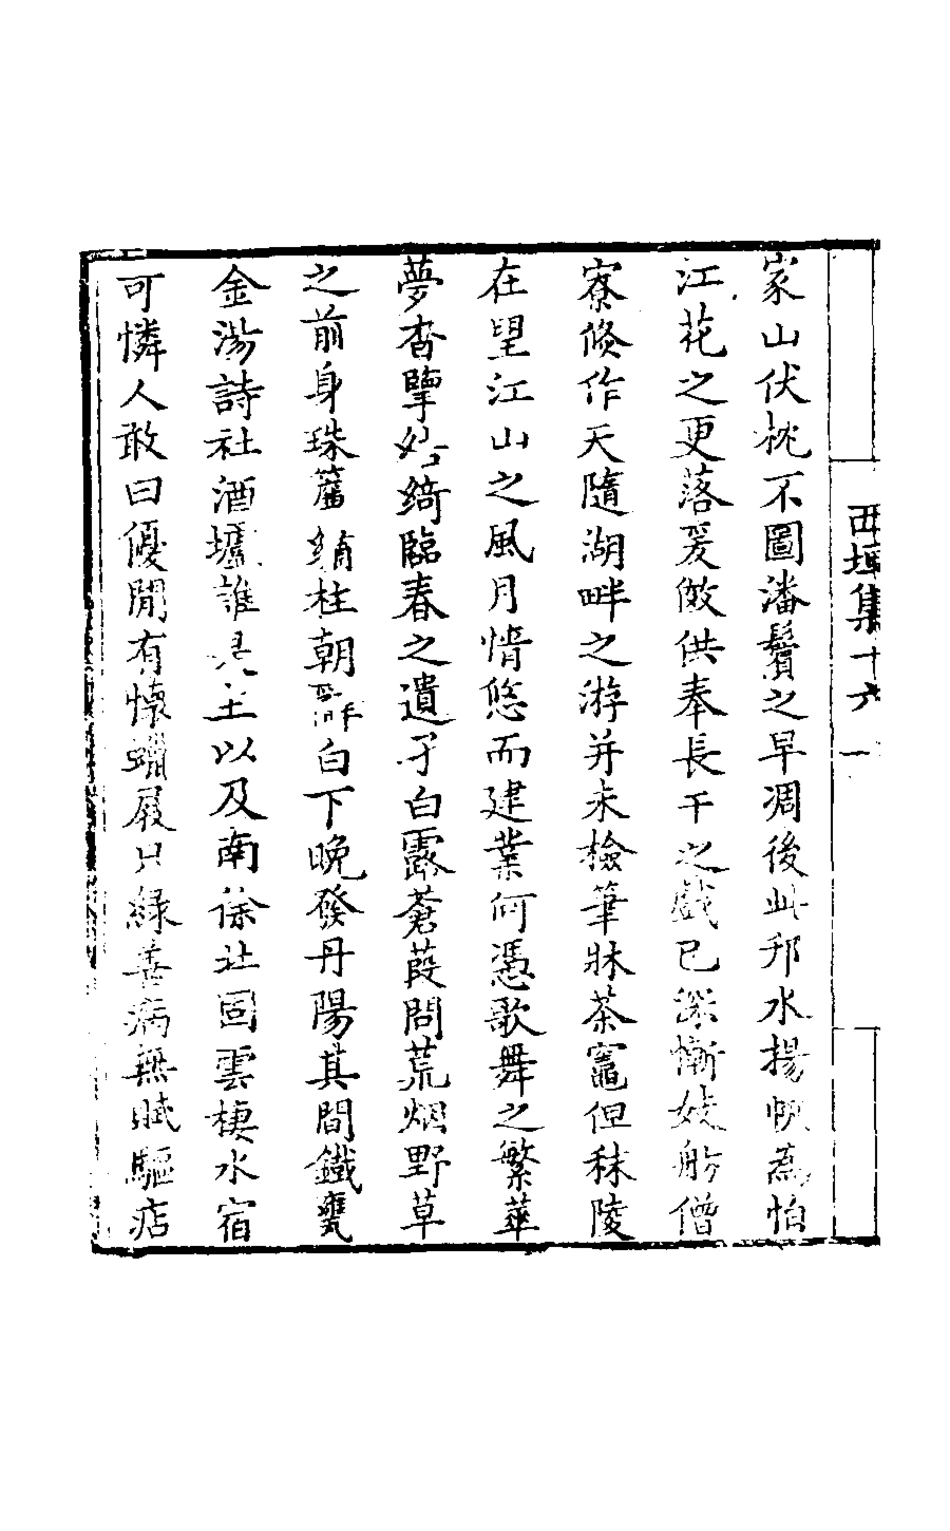 西垣集十六 一
家山伏枕不圖潘鬢之早凋後此邗水揚帆爲怕
江花之更落爰倣供奉長干之戲已深慚妓舫僧
寮倏作天隨湖畔之游并未檢筆牀茶竈但秣陵
在望江山之風月惝悠而建業何憑歌舞之繁華
夢杳擘妙綺臨春之遺孑白露蒼葭問荒烟野草
之前身珠簾繡柱朝辭白下晚發丹陽其間鐵甕
金湯詩社酒壚誰是主以及南徐北固雲棲水宿
可憐人敢曰優閒有懷蠟屐只緣善病無賦驅店